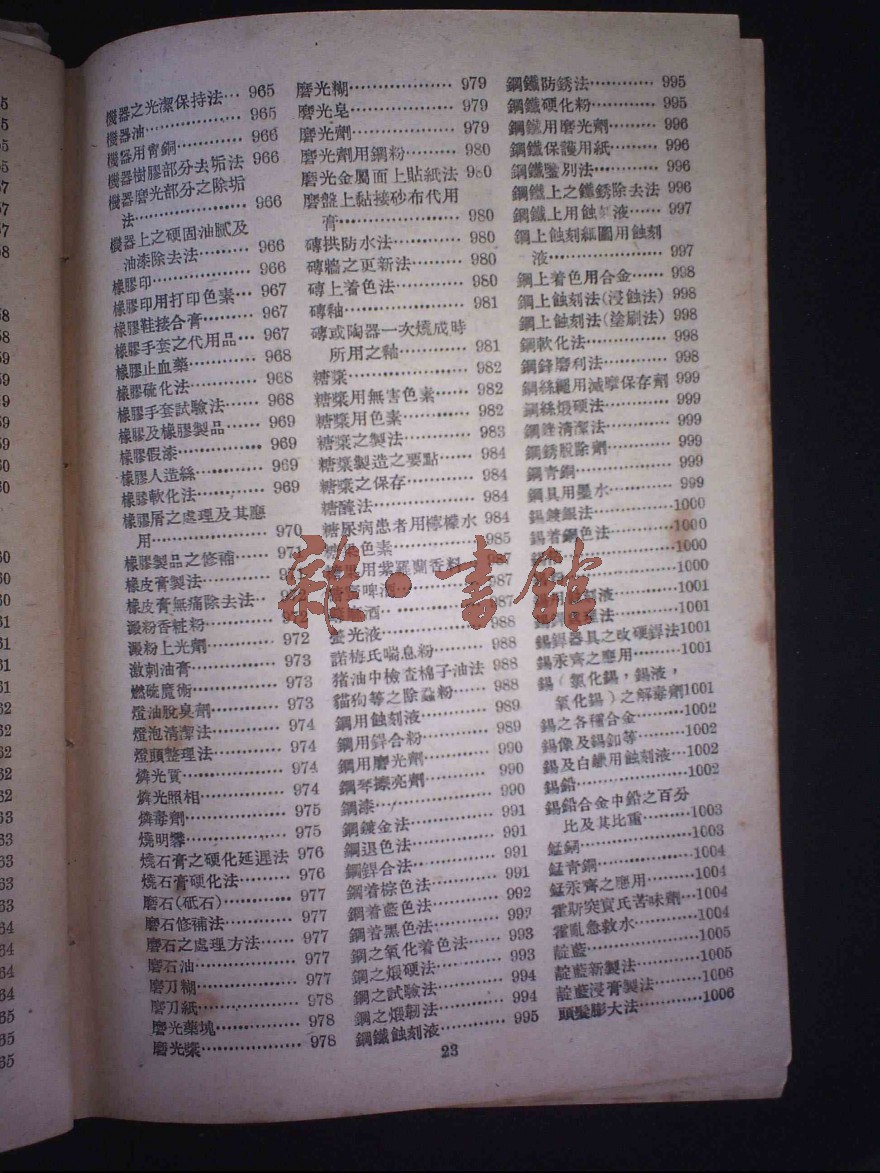 機器之光潔保持法… 965
機器油………………… 965
機器用青銅…………… 966
機器樹膠部分去垢法 966
機器磨光部分之除垢
法………………… 966
機器上之硬固油膩及
油漆除去法……… 966
橡膠印………………… 966
橡膠印用打印色素… 967
橡膠鞋接合膏……… 967
橡膠手套之代用品… 967
橡膠止血藥………… 968
橡膠硫化法………… 968
橡膠手套試驗法…… 968
橡膠及橡膠製品…… 969
橡膠假漆…………… 969
橡膠人造絲………… 969
橡膠軟化法………… 969
橡膠屑之處理及其應
用………………… 970
橡膠製品之修補…… 971
橡皮膏製法…………
橡皮膏無痛除去法… 972
澱粉香粧粉………… 972
澱粉上光劑………… 972
激刺油膏…………… 973
燃硫魔術…………… 973
燈油脫臭劑………… 973
燈泡清潔法………… 974
燈頭整理法………… 974
燐光質……………… 974
燐光照相…………… 974
燐毒劑……………… 975
燒明礬……………… 975
燒石膏之硬化延遲法 976
燒石膏硬化法……… 976
磨石(砥石)………… 977
磨石修補法………… 977
磨石之處理方法…… 977
磨石油……………… 977
磨刀糊……………… 977
磨刀紙……………… 978
磨光藥塊…………… 978
磨光漿……………… 978
磨光糊……………… 979
磨光皂……………… 979
磨光劑……………… 979
磨光劑用鋼粉……… 980
磨光金屬面上貼紙法 980
磨盤上黏接砂布代用
膏………………… 980
磚拱防水法………… 980
磚牆之更新法……… 980
磚上着色法………… 980
磚釉………………… 981
磚或陶器一次燒成時
所用之釉………… 981
糖漿………………… 982
糖漿用無害色素…… 982
糖漿用色素………… 982
糖漿之製法………… 983
糖漿製造之要點…… 984
糖漿之保存………… 984
糖醃法……………… 984
糖尿病患者用檸檬水 984
色素……………… 985
用紫羅蘭香料 987
啤酒… 987
酒… 987
養光液……………… 988
諾梅氏喘息粉……… 988
猪油中檢查棉子油法 988
貓狗等之除蝨粉…… 988
鋼用蝕刻液………… 989
鋼用銲合粉………… 989
鋼用磨光劑………… 990
鋼琴擦亮劑………… 990
鋼漆………………… 990
鋼鍍金法…………… 991
鋼退色法…………… 991
鋼銲合法…………… 991
鋼着棕色法………… 991
鋼着藍色法………… 992
鋼着黑色法………… 992
鋼之氧化着色法…… 993
鋼之煅硬法………… 993
鋼之試驗法………… 994
鋼之煅韌法………… 994
鋼鐵蝕刻液………… 995
鋼鐵防銹法………… 995
鋼鐵硬化粉………… 995
鋼鐵用磨光劑……… 996
鋼鐵保護用紙……… 996
鋼鐵鑒別法………… 996
鋼鐵上之鐵銹除去法 996
鋼鐵上用蝕刻液…… 997
鋼上蝕刻細圖用蝕刻
液………………… 997
鋼上着色用合金…… 998
鋼上蝕刻法(浸蝕法) 998
鋼上蝕刻法(塗刷法) 998
鋼軟化法…………… 998
鋼鋒磨利法………… 998
鋼絲繩用減摩保存劑 999
鋼絲煅硬法………… 999
鋼銼清潔法………… 999
鋼銹脫除劑………… 999
鋼青銅……………… 999
鋼具用墨水………… 999
錫鍍銀法……………1000
錫着鋼色法…………1000
1000
1000
液……………1001
法……………1001
錫銲器具之改硬銲法1001
錫汞齊之應用………1001
錫(氯化錫，錫液，
氧化錫)之解毒劑1001
錫之各種合金………1002
錫像及錫釦等………1002
錫及白鑞用蝕刻液…1002
錫鉛…………………1002
錫鉛合金中鉛之百分
比及其比重………1003
錳鋼…………………1003
錳青銅………………1004
錳汞齊之應用………1004
霍斯突賓氏苦味劑…1004
霍亂急救水…………1004
靛藍…………………1005
靛藍新製法…………1005
靛藍浸膏製法………1006
頭髮膨大法…………1006
23
雜·書館